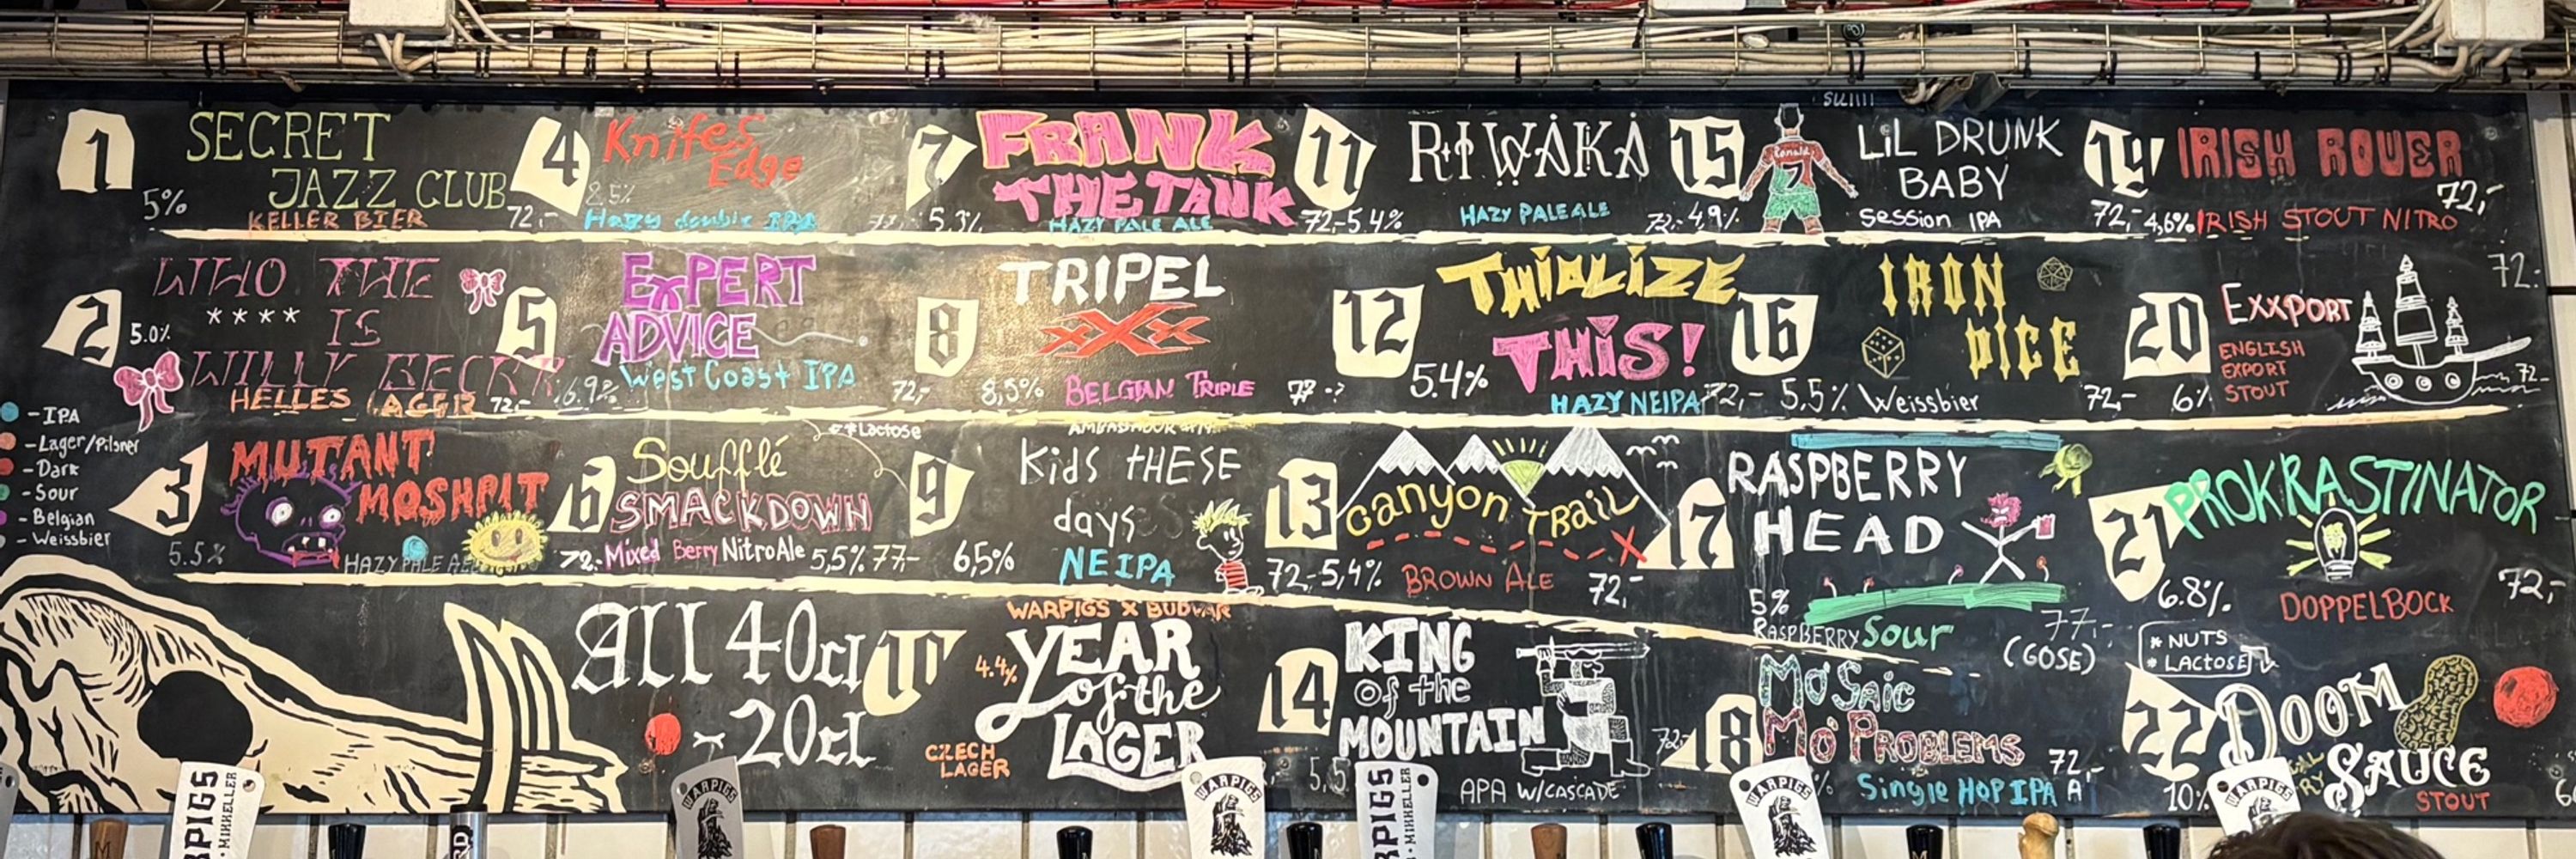 1
SECRET
JAZZ CLUB
5%
KELLER BIER
72,-
4
Knifes
Edge
8.5%
Hazy double IPA
77,-
7
FRANK
THE TANK
5.3%
HAZY PALE ALE
72,-
11
RIWAKA
5.4%
HAZY PALE ALE
72,-
15
SUIIII
Ronaldo
7
LiL DRUNK
BABY
4,9%
Session IPA
72,-
19
IRISH ROVER
72,-
4,6%
IRISH STOUT NITRO
2
WHO THE
**** IS
WILLY BECKR
5.0%
HELLES LAGER
72,-
5
EXPERT
ADVICE
6.9%
West Coast IPA
72,-
8
TRIPEL
XXX
8,5%
BELGIAN TRIPLE
77,-
12
THIOLIZE
THIS!
5.4%
HAZY NEIPA
72,-
16
IRON
DICE
5.5% Weissbier
72,-
20
EXXPORT
ENGLISH
EXPORT
STOUT
6%
72,-
72,-
- IPA
- Lager/Pilsner
- Dark
- Sour
- Belgian
- Weissbier
3
MUTANT
MOSHPIT
5.5%
HAZY PALE ALE
72,-
6
*Lactose
Soufflé
SMACKDOWN
Mixed Berry Nitro Ale 5,5% 77,-
9
Kids THESE
days
6,5%
NEIPA
72,-
13
Canyon TRAIL
5,4%
BROWN ALE
72,-
17
RASPBERRY
HEAD
5%
RASPBERRY Sour
(GOSE)
77,-
21
PROKRASTINATOR
6.8%
DOPPELBOCK
72,-
ALL 40cl
- 20cl
10
WARPIGS X BUDVAR
YEAR
of the
LAGER
4.4%
CZECH
LAGER
14
KING
of the
MOUNTAIN
5,5
APA W/CASCADE
72,-
18
MO'SAIC
MO'PROBLEMS
%
Single HOP IPA
72,-
22
* NUTS
* LACTOSE
DOOM
SAUCE
10%
STOUT
WARPIGS
MIKKELLER
WARPIGS
WARPIGS
RPIGS
MIKKELLER
WARPIGS
WARPIGS